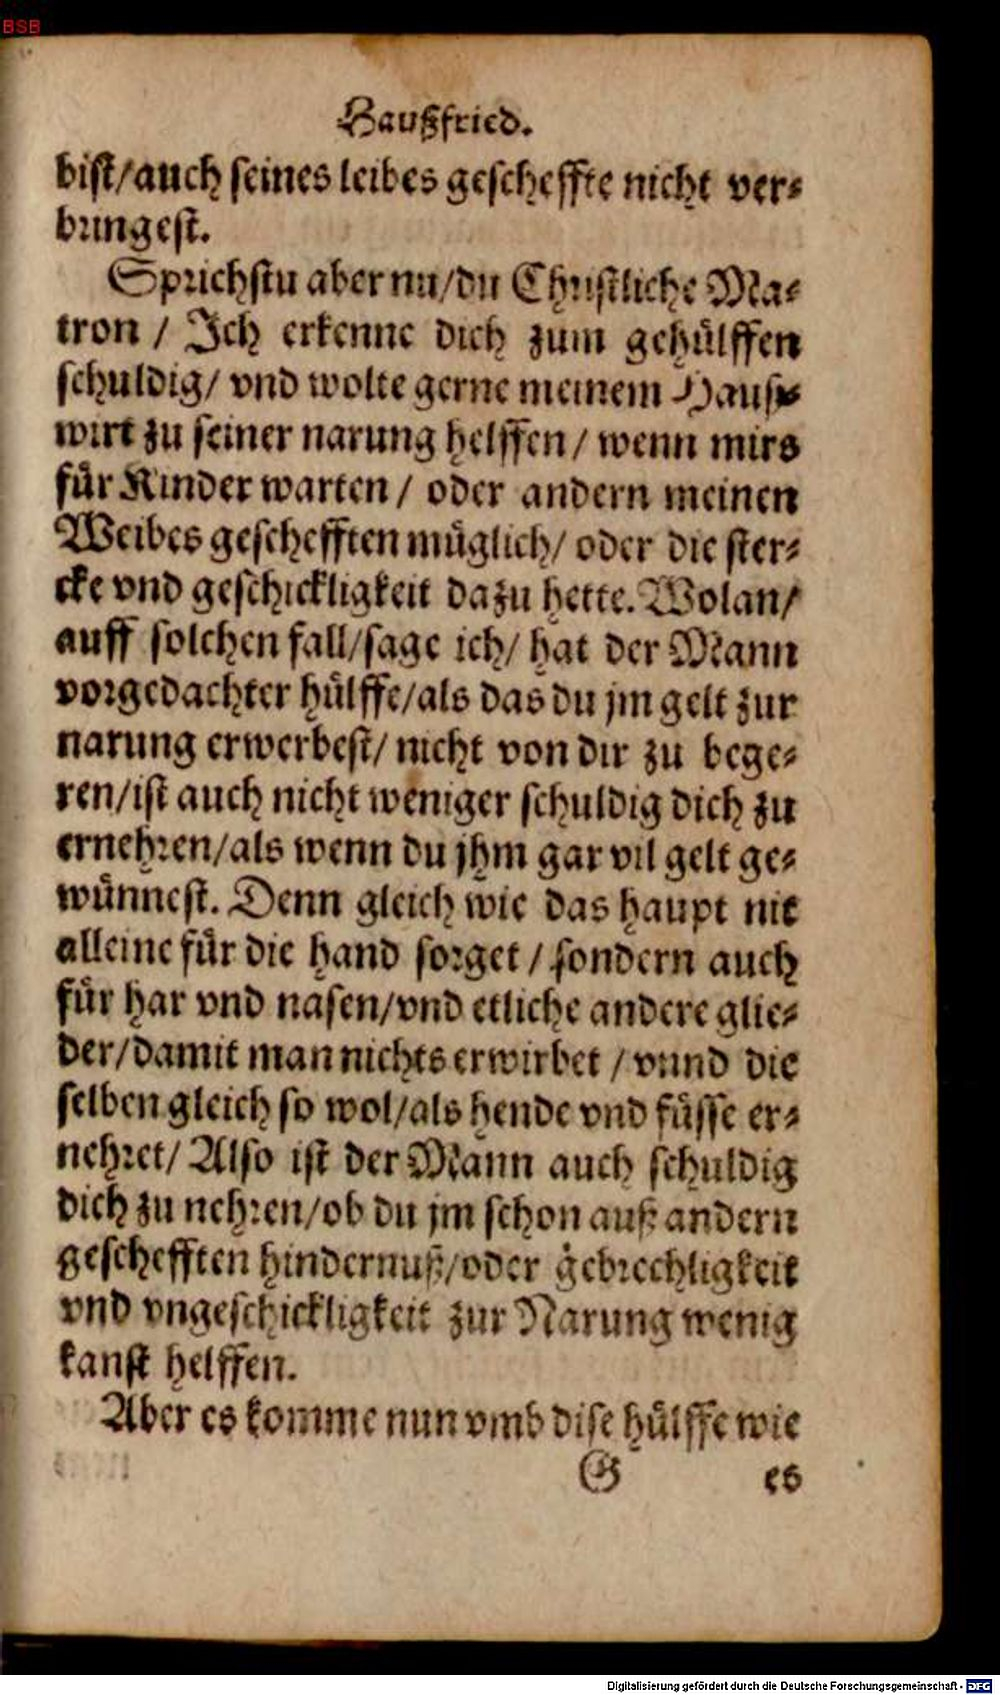 BSB
Haußfried.
bist/auch seines leibes gescheffte nicht ver-
bringest.
Sprichstu aber nu/du Christliche Ma-
tron / Ich erkenne dich zum gehülffen
schuldig/ vnd wolte gerne meinem Haus-
wirt zu seiner narung helffen / wenn mirs
für Kinder warten / oder andern meinen
Weibes geschefften müglich/ oder die ster-
cke vnd geschickligkeit dazu hette. Wolan/
auff solchen fall/sage ich/ hat der Mann
vorgedachter hülffe/als das du jm gelt zur
narung erwerbest/ nicht von dir zu bege-
ren/ist auch nicht weniger schuldig dich zu
ernehren/als wenn du jhm gar vil gelt ge-
wünnest. Denn gleich wie das haupt nit
alleine für die hand sorget / sondern auch
für har vnd nasen/vnd etliche andere glie-
der/damit man nichts erwirbet / vnnd die
selben gleich so wol/als hende vnd füsse er-
nehret/ Also ist der Mann auch schuldig
dich zu nehren/ob du jm schon auß andern
geschefften hindernuß/oder gebrechligkeit
vnd vngeschickligkeit zur Narung wenig
kanst helffen.
Aber es komme nun vmb dise hülffe wie
G es
Digitalisierung gefördert durch die Deutsche Forschungsgemeinschaft - DFG